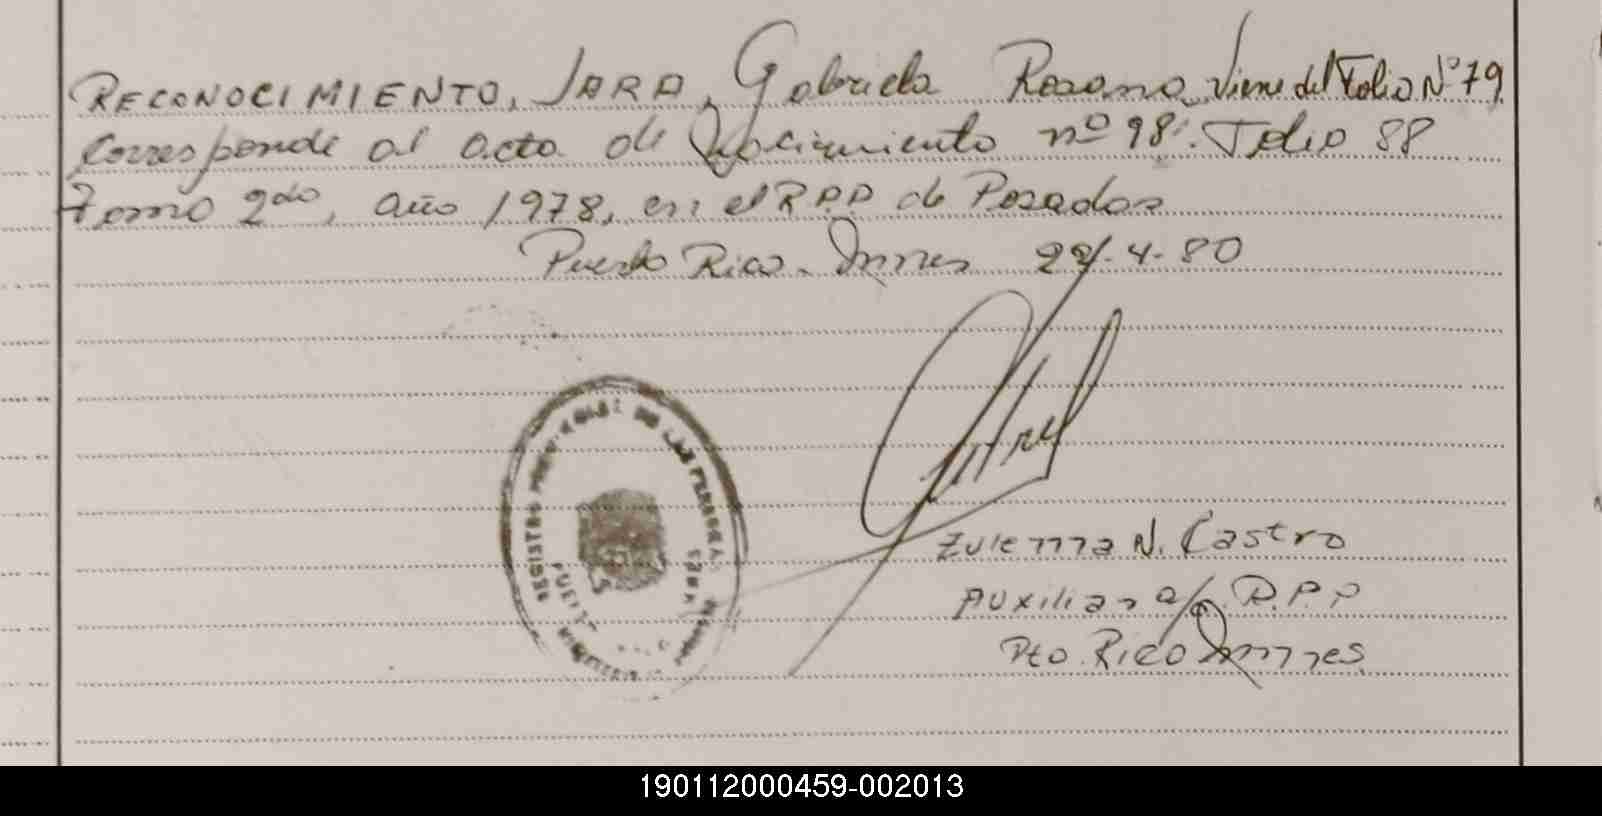 RECONOCIMIENTO, JARA, Gabriela Rosana Viene del Folio Nº 79
Corresponde al acta de Nacimiento nº 98. Folio 88
Tomo 2do, año 1978, en el R.P.P de Posadas
Puerto Rico. Mnes 22-4-80
REGISTRO PROVINCIAL DE LAS PERSONAS
Zulema N. Castro
Auxiliar a/c. R.P.P
Pto. Rico Mnnes
190112000459-002013